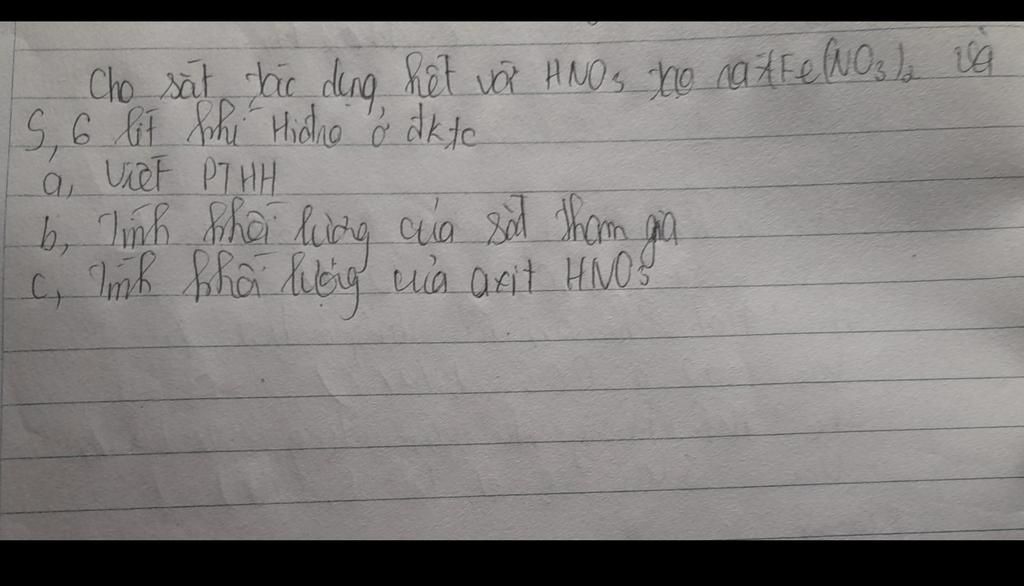 Cho sắt tác dụng hết với HNO3 tạo ra Fe(NO3)2 và
5,6 lít khí Hiđro ở đktc
a, Viết PTHH
b, Tính khối lượng của sắt tham gia
c, Tính khối lượng của axit HNO3